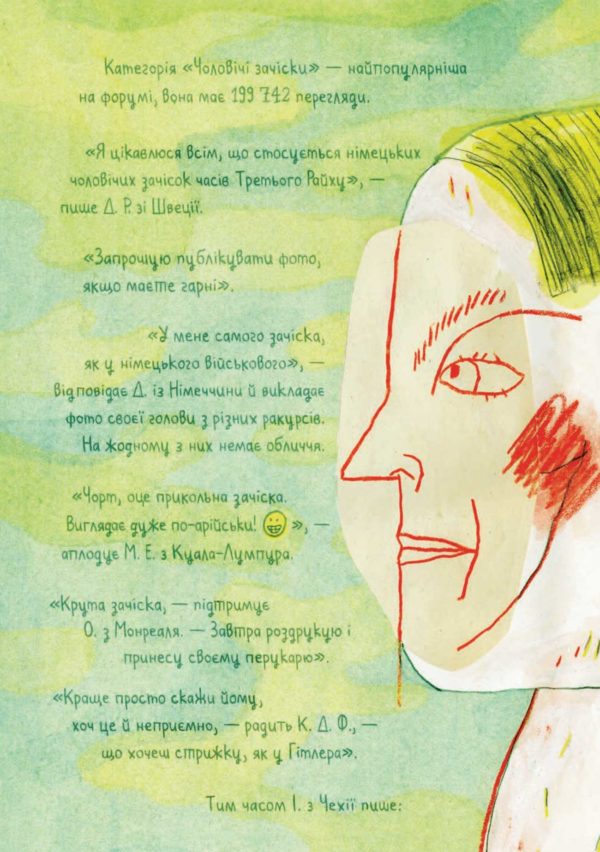 Категорія «Чоловічі зачіски» — найпопулярніша
на форумі, вона має 199 742 перегляди.
«Я цікавлюся всім, що стосується німецьких
чоловічих зачісок часів Третього Райху», —
пише Д. Р. зі Швеції.
«Запрошую публікувати фото,
якщо маєте гарні».
«У мене самого зачіска,
як у німецького військового», —
відповідає Д. із Німеччини й викладає
фото своєї голови з різних ракурсів.
На жодному з них немає обличчя.
«Чорт, оце прикольна зачіска.
Виглядає дуже по-арійськи! 😀 », —
аплодує М. Е. з Куала-Лумпура.
«Крута зачіска, — підтримує
О. з Монреаля. — Завтра роздрукую і
принесу своєму перукарю».
«Краще просто скажи йому,
хоч це й неприємно, — радить К. Д. Ф., —
що хочеш стрижку, як у Гітлера».
Тим часом І. з Чехії пише: